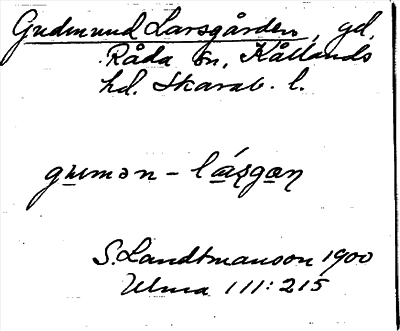 Gudmund Larsgården, gd,
Råda sn, Kållands
hd. Skarab. l.
gumən - lásgaɳ
S. Landtmanson 1900
Ulma 111:215